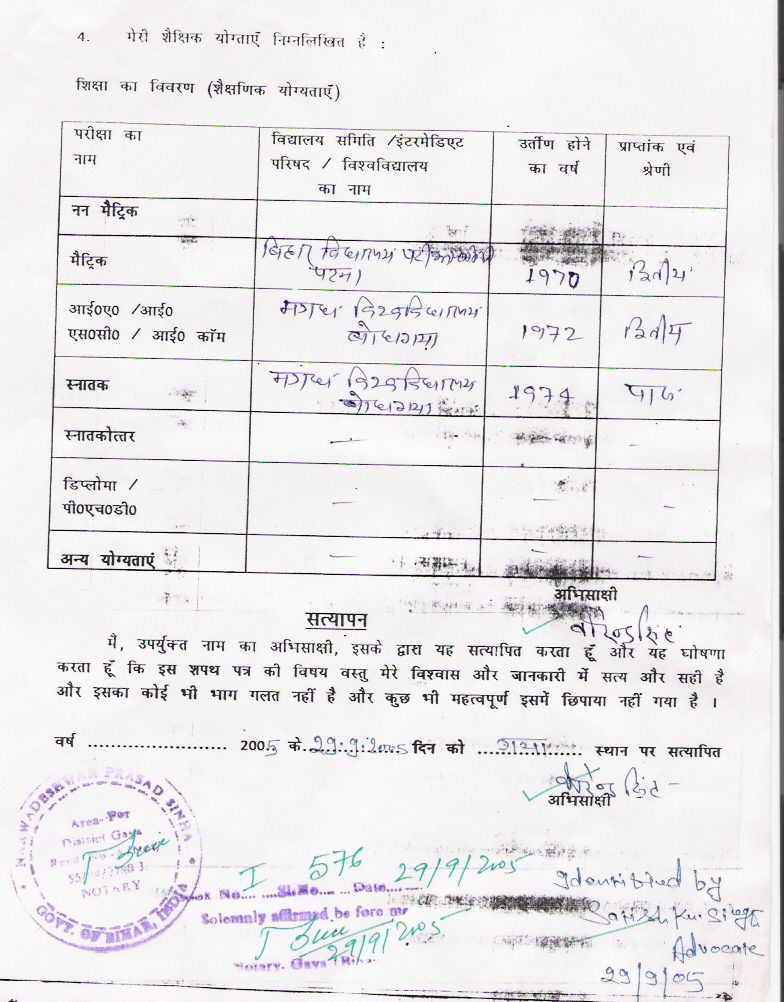 4. मेरी शैक्षिक योग्ताएँ निम्नलिखित है :
शिक्षा का विवरण (शैक्षणिक योग्यताएँ)
परीक्षा का नाम विद्यालय समिति /इंटरमेडिएट परिषद / विश्वविद्यालय का नाम उर्तीण होने का वर्ष प्राप्तांक एवं श्रेणी
नन मैट्रिक
मैट्रिक बिहार विद्यालय परीक्षा पटना 1970 द्वितीय
आई०ए० /आई० एस०सी० / आई० कॉम मगध विश्वविद्यालय बोधगया 1972 द्वितीय
स्नातक मगध विश्वविद्यालय बोधगया 1974 पास
स्नातकोत्तर — — —
डिप्लोमा / पी०एच०डी० — — —
अन्य योग्यताएं — — —
अभिसाक्षी
सत्यापन
वीरेन्द्र सिंह
मै, उपर्युक्त नाम का अभिसाक्षी, इसके द्वारा यह सत्यापित करता हूँ और यह घोषणा
करता हूँ कि इस शपथ पत्र की विषय वस्तु मेरे विश्वास और जानकारी में सत्य और सही है
और इसका कोई भी भाग गलत नहीं है और कुछ भी महत्वपूर्ण इसमें छिपाया नहीं गया है ।
वर्ष ........................ 2005 के 29.9.2005 दिन को ....गया.... स्थान पर सत्यापित
वीरेन्द्र सिंह
अभिसाक्षी
NARWADESHWAR PRASAD SINHA
Area-For
District Gaya
NOTARY
GOVT. OF BIHAR, INDIA
I 576 29/9/2005
No. Sl.No. Date
Solemnly affirmed be fore me
29/9/2005
Notary. Gaya
Identified by
Satish Kr. Singh
Advocate
29/9/05